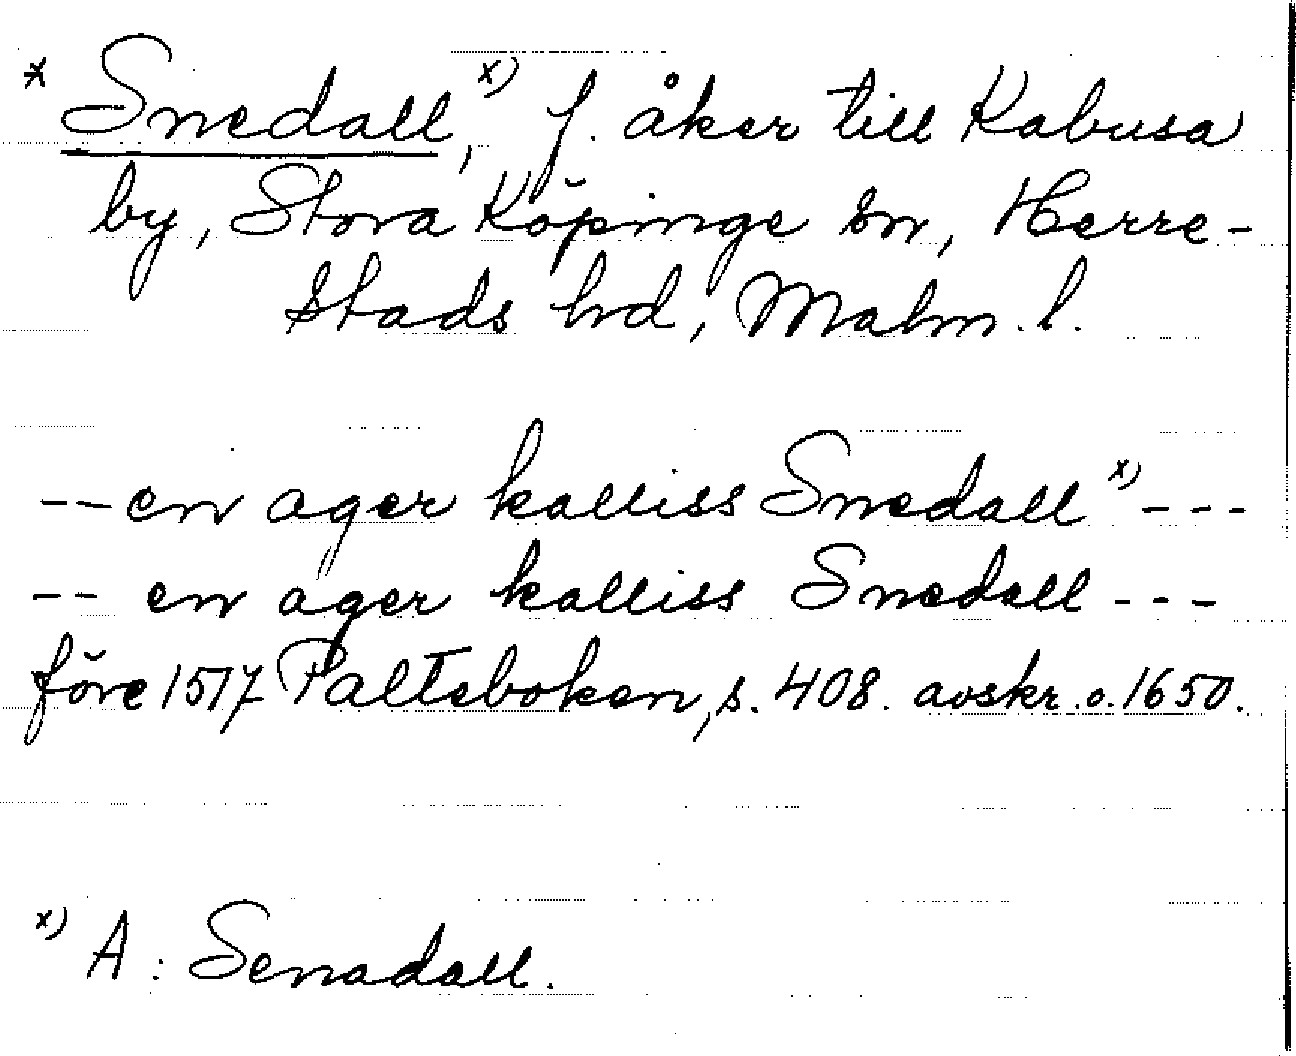 * Snedall, x) f. åker till Kabusa
by, Stora Köpinge sn, Herre-
stads hd, Malm. l.
-- en ager kalliss Snedall x) ---
-- en ager kalliss Snedall ---
före 1517 Palteboken, s. 408. avskr. o. 1650.
x) A: Senadall.